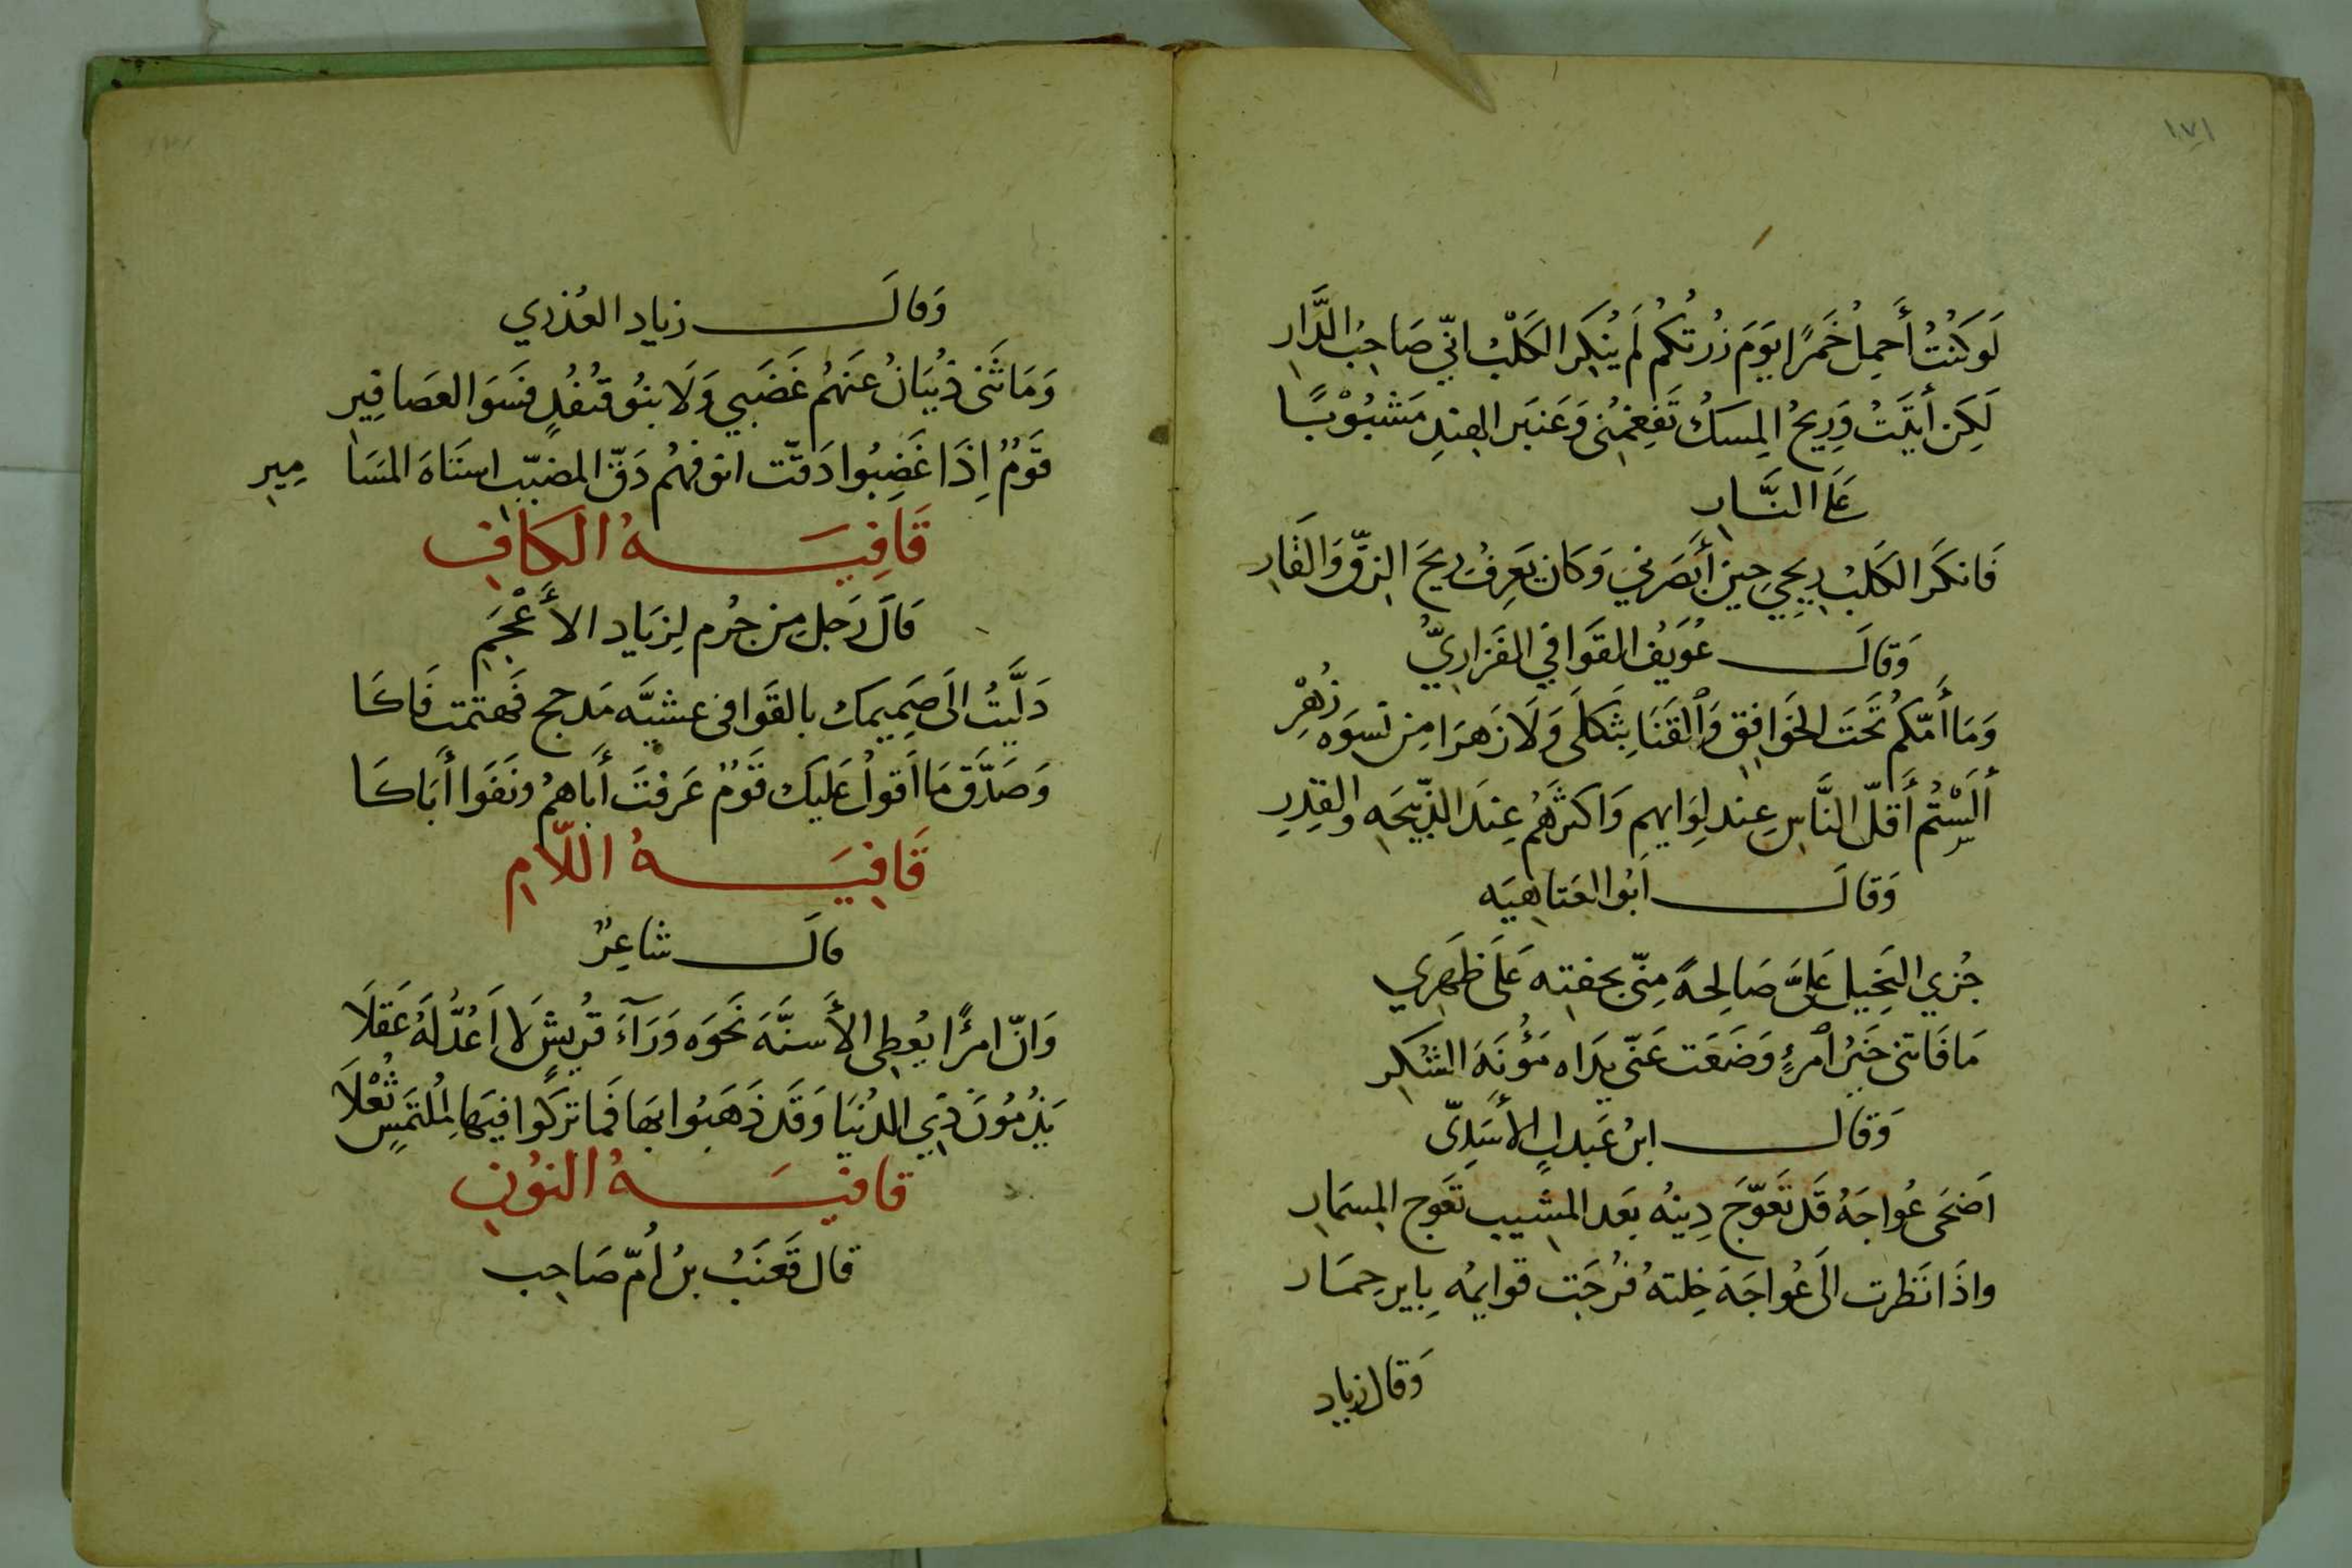 ١٧١
لَو كُنتُ أَحمِلُ خَمرًا يَومَ زُرتُكُم لَم يُنكِر الكَلبُ انّي صَاحِبُ الدَّارِ
لَكِن أَتَيتُ وَرِيحُ المِسكُ تَفغمُنِي وَعَنبَر الهِندِ مَشبُوبًا
عَلى النَّارِ
فَانكَر الكَلبُ رِيحِي حِينَ أَبصَرَني وَكَان يَعرِفُ رِيحَ الزقّ وَالقَارِ
وَقالَ عُوَيفُ القَوَافي الفَزارِيُّ
وَمَا أُمّكُم تَحتَ الخَوَافِقِ وَالقَنَا بِثَكلَى وَلَا زَهرَا مِن نسوَه زُهْرِ
أَلَسْتُم أَقلّ النَّاسِ عِند لِوَايهم وَاكثَرهُم عِندَ الذّبيحَه والقِدرِ
وَقالَ أبُو العَتاهِيَه
جُزي البَخِيل عَلَيَّ صَالِحةً مِنّي بخفته عَلَى ظَهرِي
مَا فَاتني خَيرُ امرِءٍ وَضَعَت عَنّي يدَاه مَؤُنَةَ الشكرِ
وَقَال ابنُ عَبدلٍ الأَسَدِيّ
اَضحَى عُواجَهُ قَد تَعَوّجَ دِينُه بَعد المشَيبِ تعَوج المِسمَارِ
واذَا نَظرت الَى عُواجَهَ خِلتهُ فُرجَت قوايمُه بِاير حِمَار
وَقال زياد
وَقالَ زياد العُذرِي
وَمَا ثَنى ذُبيَانُ عَنهُم غَضَبِي وَلَا بنُو قُنفُدٍ فَسوَا العَصافِيرِ
قَومٌ إِذَا غَضِبُوا دَقّت انوفهُم دَقّ المضبّبِ استَاهَ المسَا مِيرِ
قَافِيَةُ الكَافِ
قَالَ رَجل مِن جُرم لِزيَاد الأَعْجَمِ
دَلَّيتُ الَى صَمِيمِك بالقَوَافى عشيَّه مَدحج فَهتمت فَاكَا
وَصَدَّقَ مَا اَقولُ عَليكَ قَومٌ عَرفتَ أَباهمُ ونَفَوا أَبَاكَا
قَافِيَةُ اللّامِ
قالَ شاعِرٌ
وَانّ امرًا يُعطِى الأَسنَّهَ نَحوَه وَرَآءَ قُرَيشٍ لا اَعُدُّ لَهُ عَقلَا
يَذُمُونَ دَي الدُنيَا وَقَد ذَهَبُوا بهَا فَمَا تركُوا فِيهَا لِمُلتَمسٍ ثُعْلَا
قافيَةُ النُونِ
قال قَعنَبُ بنُ اُمّ صَاحِب